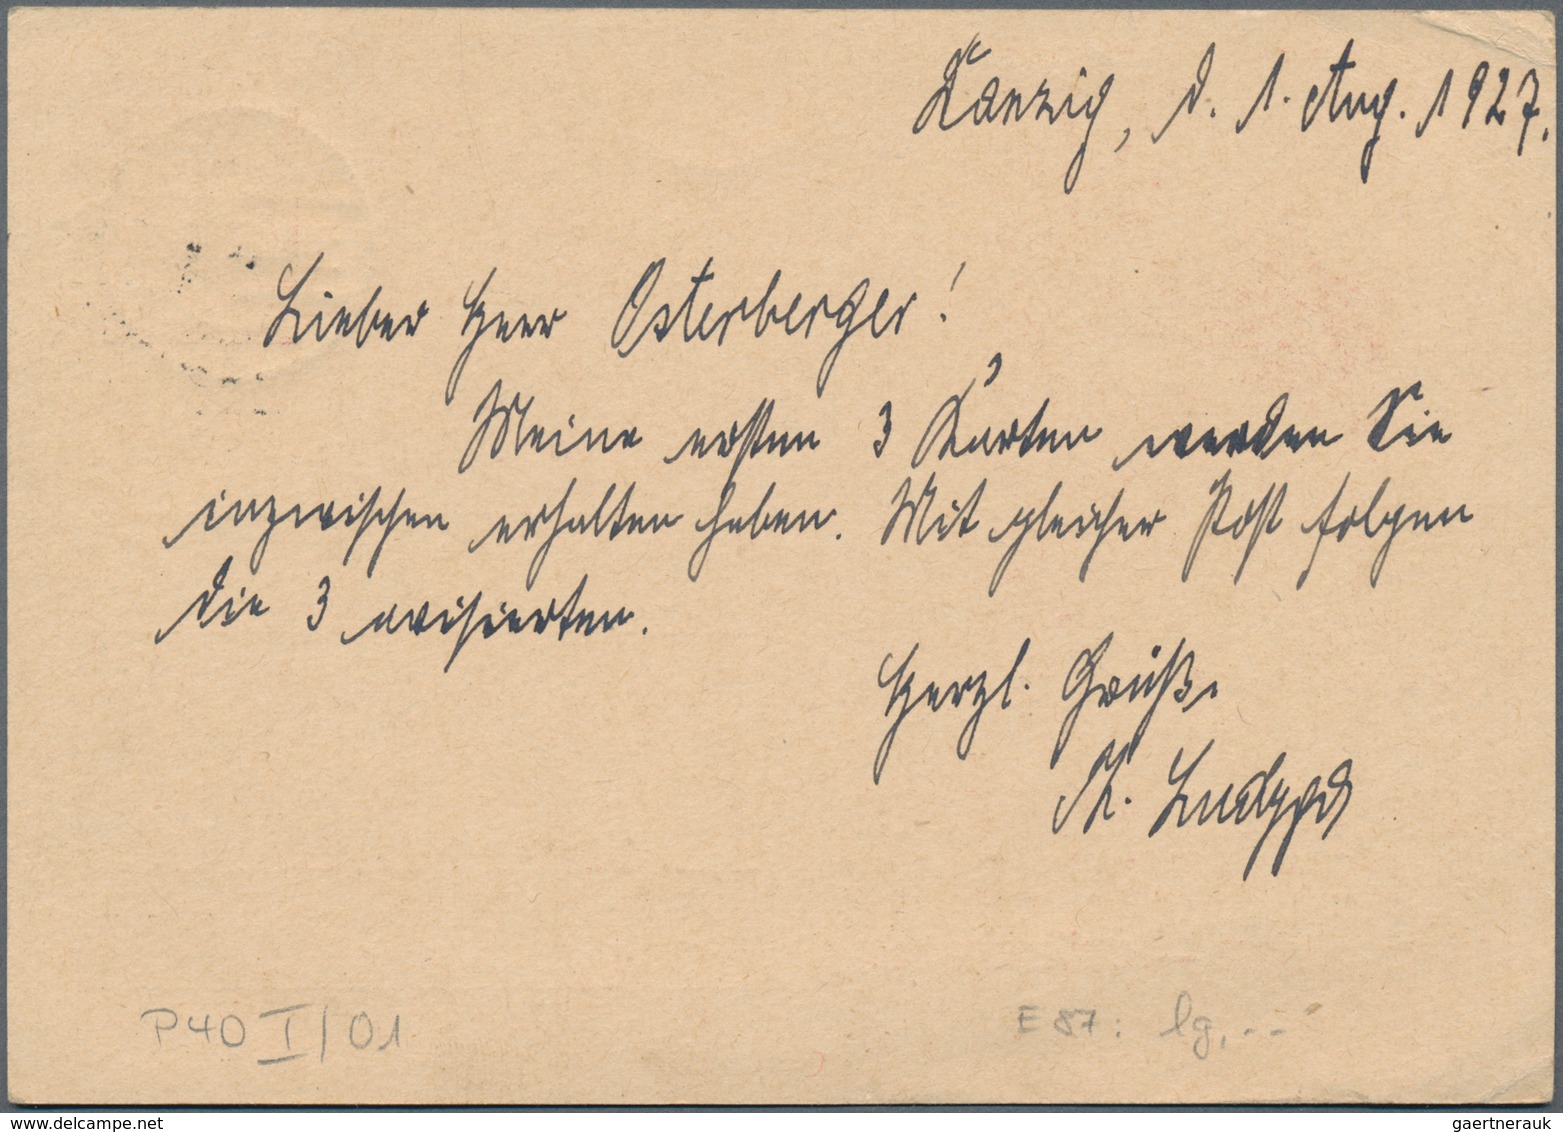 Danzig, d. 1. Aug. 1927.
Lieber Herr Osterberger!
Meine ersten 3 Karten werden Sie
inzwischen erhalten haben. Mit gleicher Post folgen
die 3 avisierten.
Herzl. Grüße
P40 I/01
E 87: lg, --
gaertnerauk